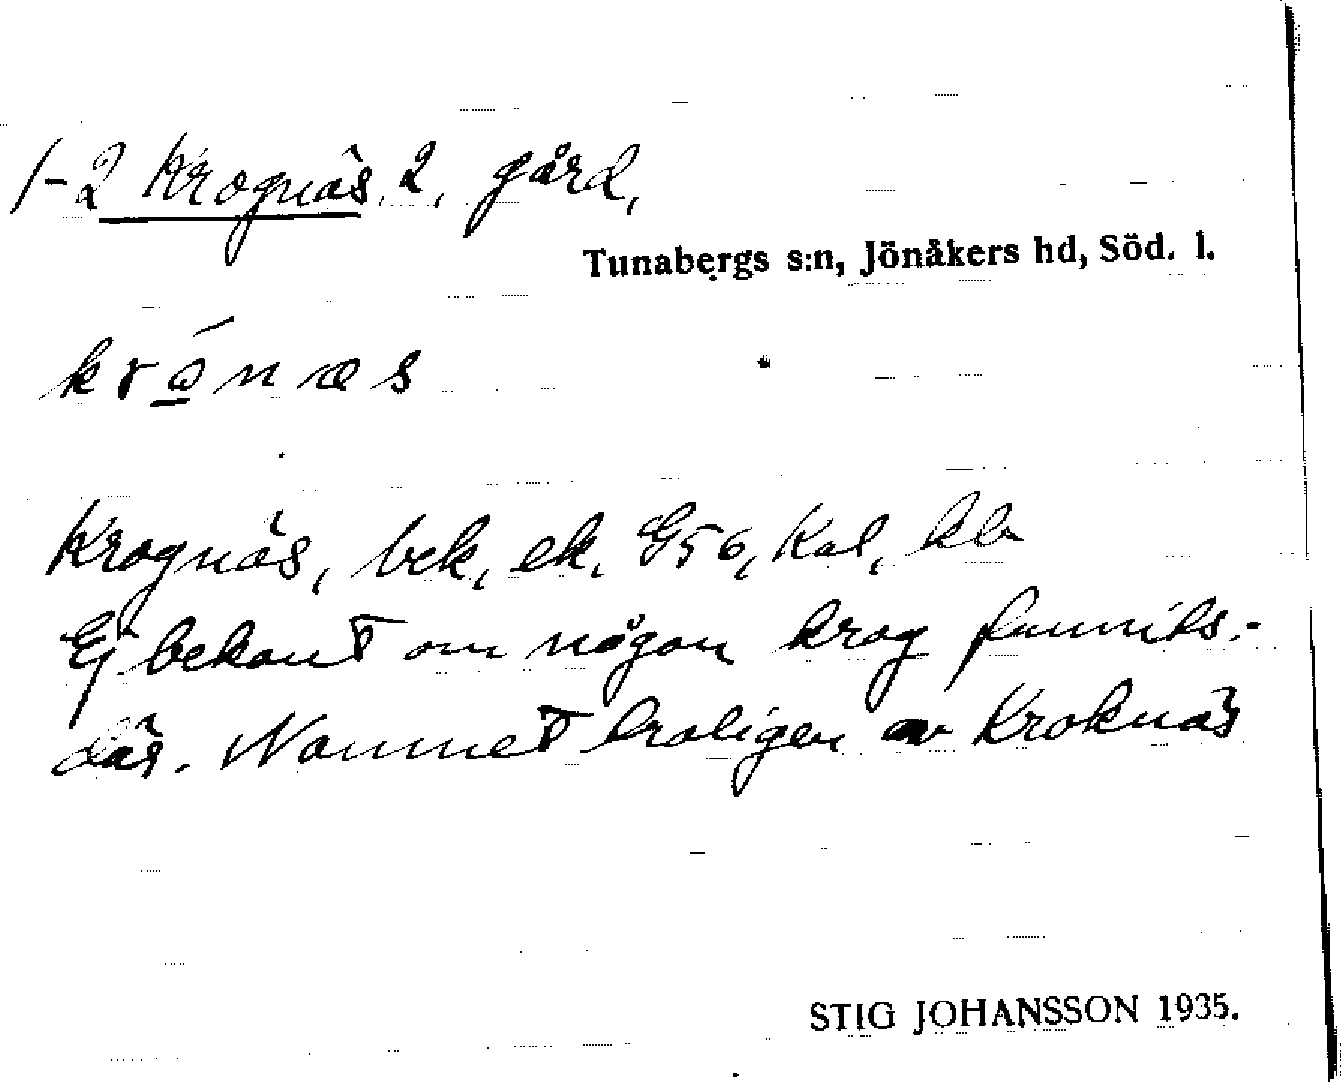 1-2 Krognäs 2, gård,
Tunabergs s:n, Jönåkers hd, Söd. l.
krǫ́næs
Krognäs, bek, ek. G56, Kal,
Ej bekant om någon krog funnits
där. Namnet troligen av Kroknäs
STIG JOHANSSON 1935.